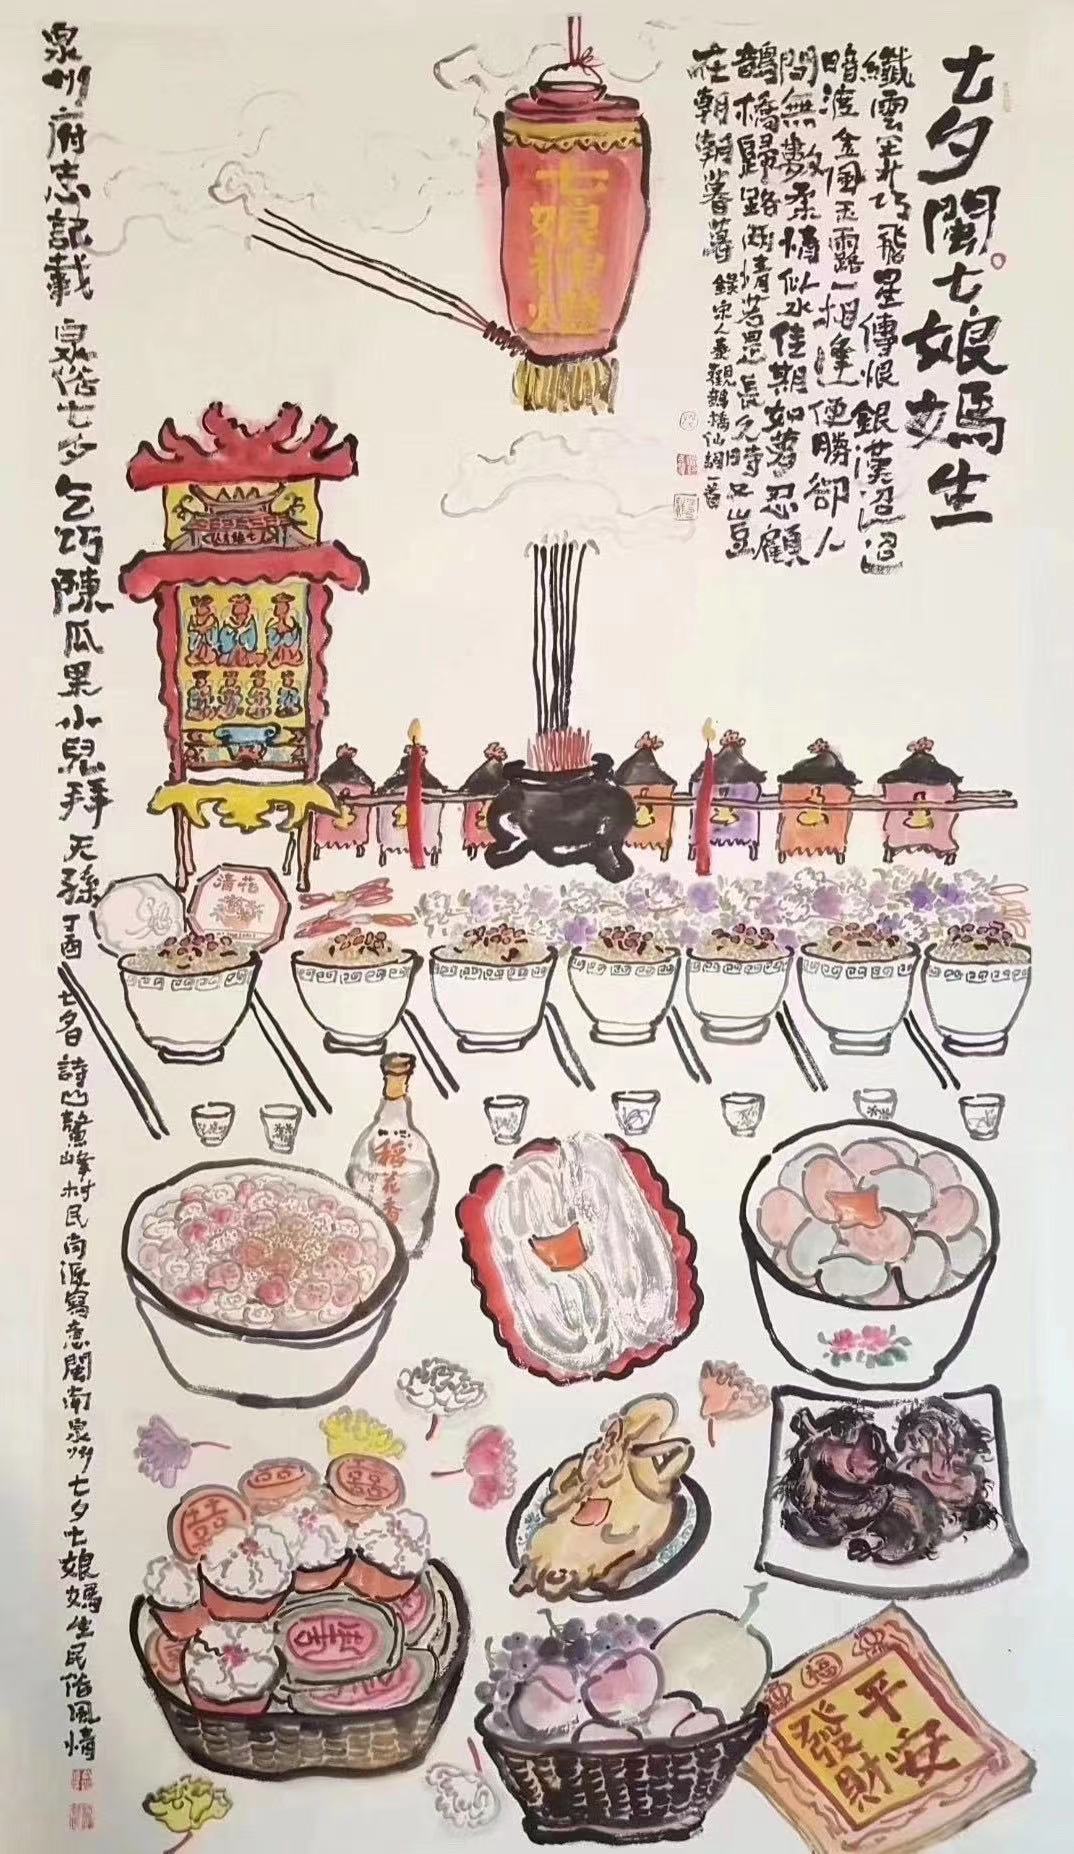 七夕閩七娘媽生
纖雲弄巧飛星傳恨銀漢迢迢
暗渡金風玉露一相逢便勝卻人
間無數柔情似水佳期如夢忍顧
鵲橋歸路兩情若是長久時又豈
在朝朝暮暮
錄宋人秦觀鵲橋仙詞一首
七娘神燈
泉州府志記載泉俗七夕乞巧陳瓜果小兒拜天孫
丁酉七夕詩山鰲峰村民尚源寫意閩南泉州七夕七娘媽生民俗風情
稻花香
囍
囍
福
平安
發財